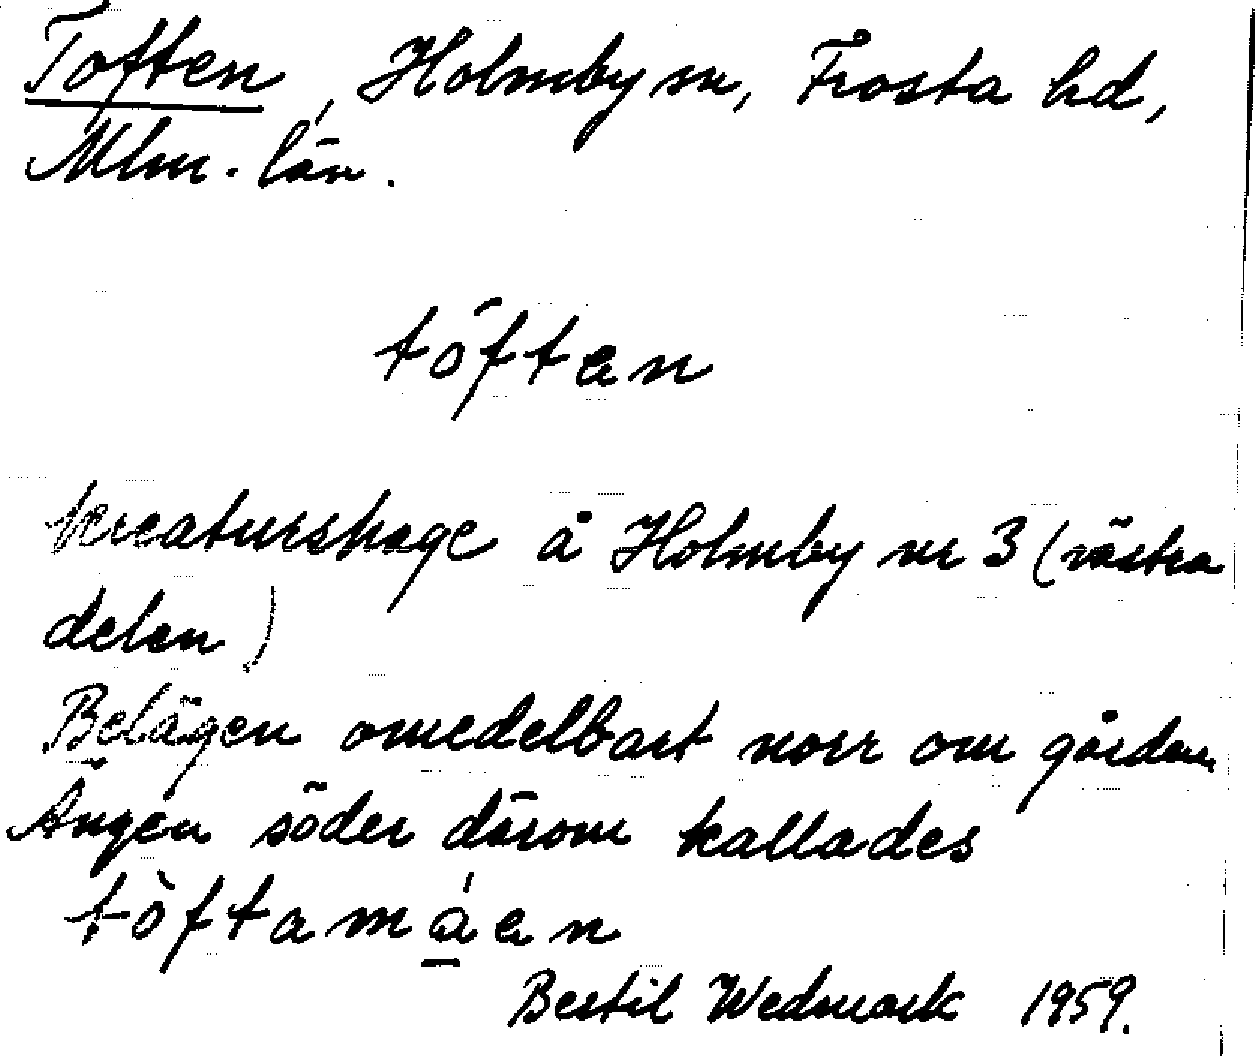 Toften, Holmby sn, Frosta hd,
Mlm. län.
tóftan
kreaturshage å Holmby nr 3 (västra
delen)
Belägen omedelbart norr om gården
Ängen söder därom kallades
tòftamáen
Bertil Wedmark 1959.